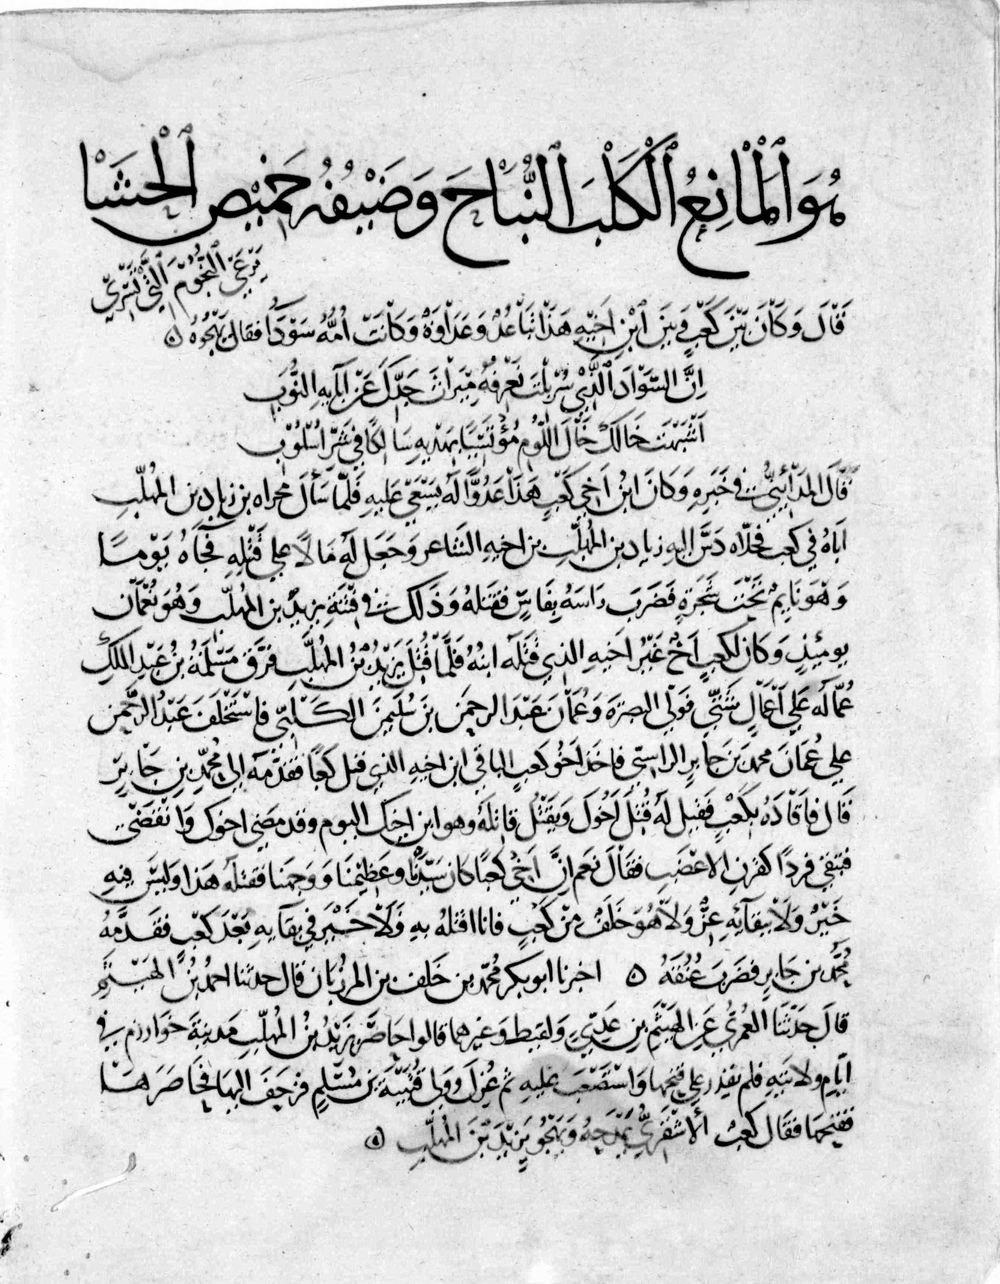 هُوَ الْمَانِعُ الْكَلْبَ النُّبَاحَ وَضَيْفُهُ خَمِيْصُ الْحَشَا
يَرْعَى النُّجُوْمَ الَّتِي تَسْرِي
قَالَ وَكَانَ بَيْنَ كَعْبٍ وَبَيْنَ ابْنِ اَخِيْهِ هَذَا تَبَاعُدٌ وَعَدَاوَةٌ وَكَانَتْ اُمُّهُ سَوْدَآ فقال يَهْجُوْهُ ه
اِنَّ السَّوَادَ الَّذِيْ سُرْبِلْتَ نَعْرِفُهُ مِيْرَاثَ جَدِّكَ عَنْ اٰبَآئِهِ النُّوْبِ
اَشْبَهْتَ خَالَكَ خَالَ اللُّوْمِ مُؤْتَسِيًا بِهَدْيِهِ سَالِكًا فِي شَرِّ اُسْلُوْبِ
قَالَ المَدَآئِنِيُّ في خَبَرِهِ وَكَانَ ابْنُ اَخِي كَعْبٍ هَذَا عَدُوًّا لَهُ يَسْعَى عَلَيهِ فَلَمّا سَأَلَ مجزاه بن زياد بن المهلّب
اباهُ في كعب فخلّاه دَسَّ اليه زياد بن المُهلّب بن اخيه الشاعر وَجَعَل لَهُ مَالًا على قَتْلِهِ فَجَآهُ يَوْمًا
وَهْوَ نَايِمٌ تَحْتَ شَجَرَةٍ فَضَرَبَ رَاسَهُ بِفَاسٍ فَقَتَلَهُ وَذَلِكَ في فِتْنَةِ يزيد بن المهلّب وَهُوَ بعُمَان
يومئذٍ وَكَان لكعب اَخٌ غَيْرُ اخيهِ الذي قَتَلَهُ ابنُهُ فَلَمَّا قُتِلَ يَزِيْدُ بْنُ المُهَلَّبِ فَرَّقَ مَسْلَمَةُ بْنُ عَبْدِ المَلِكِ
عُمَّالَهُ عَلَى اَعْمَالٍ شَتَّى فَوَلّى البصرَةَ وَعُمَانَ عَبْدَ الرحمن بن سُلَيمنَ الكَلْبِيّ فاسْتَخْلَفَ عَبْدُ الرَّحمٰن
على عُمَانَ محمد بن جابر الراسبي فاخذ اخو كعبٍ الباقي ابن اخيهِ الذي قتل كعبًا فقدّمهُ الى مُحَمَّدِ بنِ جَابِرٍ
قال فاقادهُ بكَعْبٍ فقيل لهُ قُتِلَ اَخُوك وَيَقْتُل قاتِلَهُ وهو ابن اخيك اليوم وقد مضى اخوك وَانْقَضَى
فتبقى فردًا كقرنِ الاَعْضَبِ فقال نَعم اِنَّ اَخِي كعبًا كان سَيِّدَنَا وَعَظِيْمَنَا وَوَجْهَنا فقتلهُ هذا وليسَ فِيهِ
خَيْرٌ وَلَا بِبَقَآئِهِ عِزٌّ وَلَا هُوَ خَلَفٌ مِنْ كَعْبٍ فانا اقتلهُ بِهِ وَلَا خَيْرَ في بقآيِهِ بَعْدَ كَعْبٍ فَقَدَّمَهُ
مُحَمَّدُ بن جَابِرٍ فَضَرَبَ عُنُقَهُ ه اخبرنا ابو بكر مُحمّد بن خلف بن المرزُبان قال حدثنا احمدُ بنُ الهَيْثَمِ
قال حَدَّثَنَا العُمَرِيُّ عَنِ الهَيْثَمِ بن عَدِيٍّ وَلقيطٍ وغيرهما قالوا حَاصَرَ يَزِيْدُ بنُ المُهلّب مَدينةَ خُوَارزم في
ايّام ولايته فلم يقدر على فتحها وَاسْتَصْعَبَ عليهِ ثم عُزِلَ وَوَلِيَ قُتَيْبَةُ بن مُسْلِمٍ فزحَفَ اليها فحاصَرَهَا
ففتحها فقال كعبٌ الاَشْقَرِيُّ يَمْدَحُهُ وَيَهْجُو يَزِيْدَ بْنَ المُهَلَّبِ ه